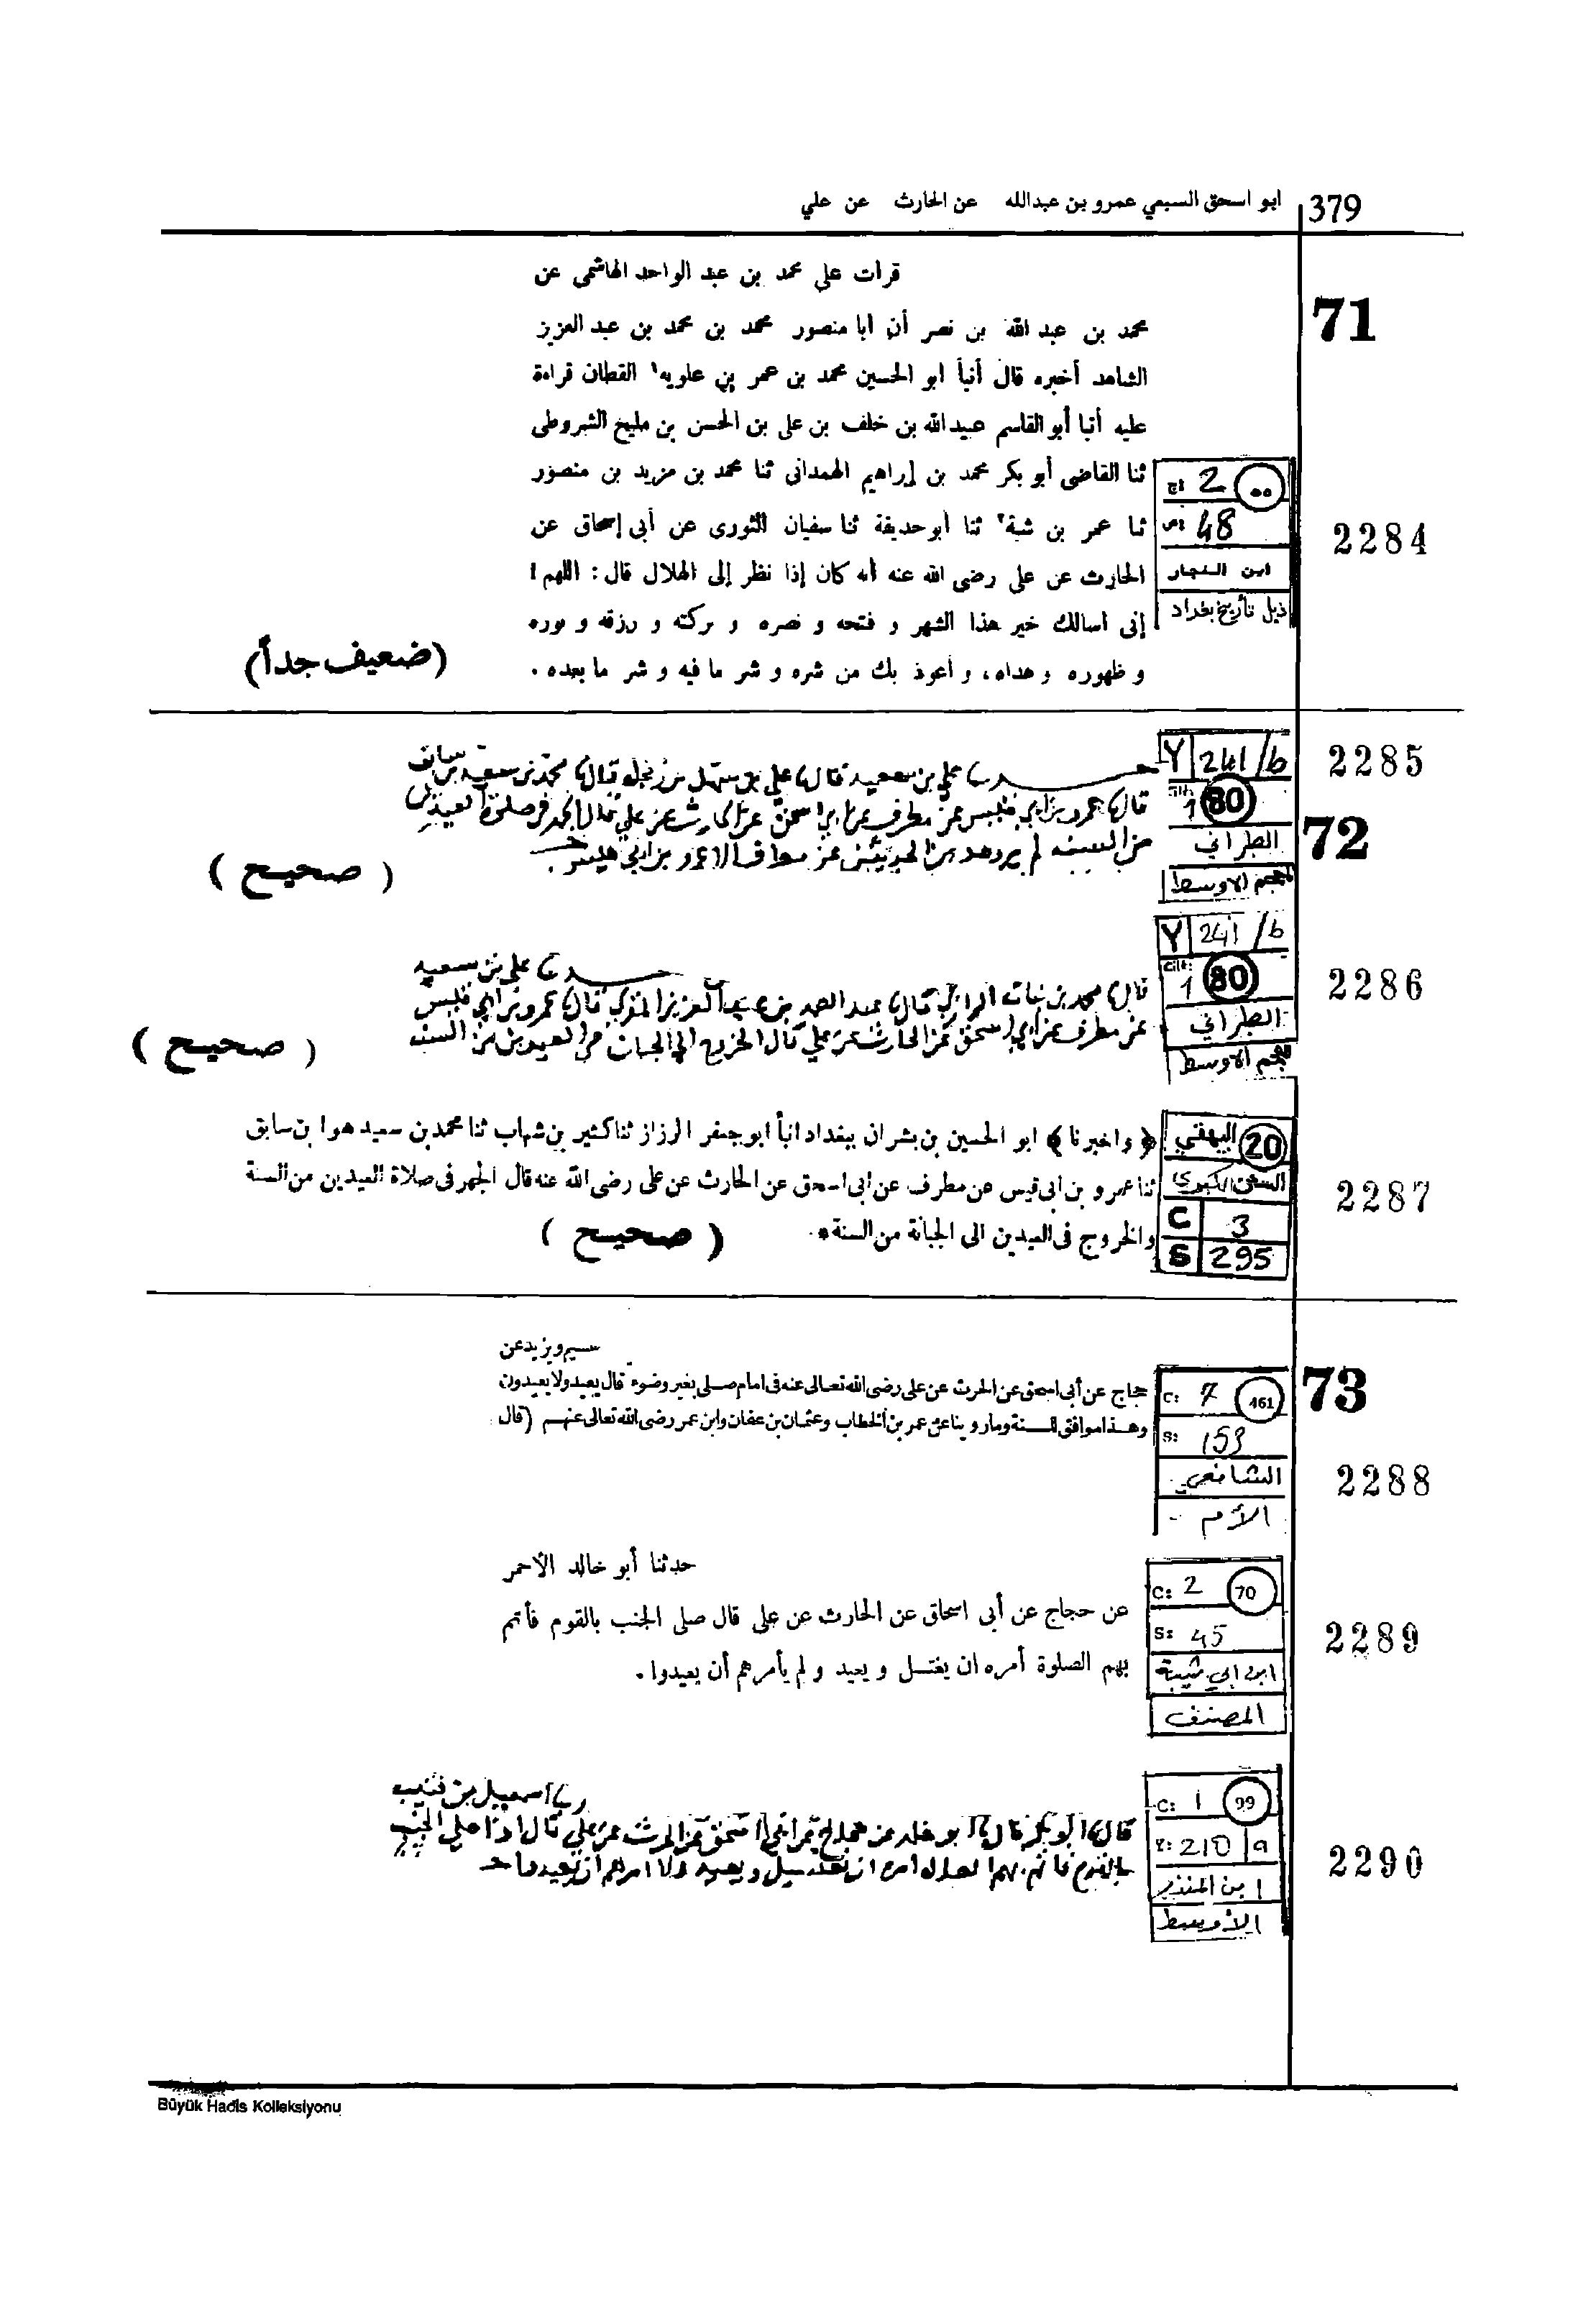 379 ابو اسحق السبيعي عمرو بن عبدالله عن الحارث عن علي
71
قرأت على محمد بن عبد الواحد الهاشمى عن
محمد بن عبد الله بن نصر أن أبا منصور محمد بن محمد بن عبد العزيز
الشاهد أخبره قال أنبأ ابو الحسين محمد بن عمر بن علويه١ القطان قراءة
عليه أنبا أبو القاسم عبيد الله بن خلف بن على بن الحسن بن مليح الشروطى
ثنا القاضى أبو بكر محمد بن إبراهيم الهمدانى ثنا محمد بن مزيد بن منصور
ثنا عمر بن شبة٢ ثنا أبو حذيفة ثنا سفيان الثورى عن أبى إسحاق عن
الحارث عن على رضى الله عنه أنه كان إذا نظر إلى الهلال قال: اللهم!
إنى اسالك خير هذا الشهر و فتحه و نصره و بركته و رزقه و نوره
و ظهوره و هداه، و أعوذ بك من شره و شر ما فيه و شر ما بعده .
(ضعيف جداً)
2
48
ابن النجار
ذيل تأريخ بغداد
2284
72
Y 241/b
1 80
الطبراني
المعجم الاوسط
2285
علي بن سعيد قال علي بن سهل قال محمد بن سعيد بن سابق
قال عمرو بن ابي قيس عن مطرف عن ابي اسحق عن الحارث عن علي قال الجهر في صلوة العيدين
من السنه لم يرو هذين الحديثين عن مطرف الا عمرو بن ابي قيس .
( صحيح )
Y 241/b
Cilt: 1 80
الطبراني
المعجم الاوسط
2286
علي بن سعيد
قال محمد بن الرازي قال عبد الصمد بن عبد العزيز المقري قال عمرو بن ابي قيس
عن مطرف عن ابي اسحق عن الحارث عن علي قال الخروج الى الجبان في العيدين من السنه
( صحيح )
20 البيهقي
السنن الكبرى
C 3
S 295
2287
﴿ واخبرنا ﴾ ابو الحسين بن بشران ببغداد انبأ ابو جعفر الرزاز ثنا كثير بن شهاب ثنا محمد بن سعيد هو ابن سابق
ثنا عمرو بن ابى قيس عن مطرف عن ابى اسحق عن الحارث عن على رضى الله عنه قال الجهر فى صلاة العيدين من السنة
والخروج فى العيدين الى الجبانة من السنة *
( صحيح )
73
C: 7 461
S: 153
الشافعي
الأم
2288
هشيم ويزيد عن
حجاج عن أبى اسحق عن الحرث عن على رضى الله تعالى عنه فى امام صلى بغير وضوء قال يعيد ولا يعيدون
وهذا موافق للسنة وما روينا عن عمر بن الخطاب وعثمان بن عفان وابن عمر رضى الله تعالى عنهم (قال
C: 2 70
S: 45
ابن ابي شيبة
المصنف
2289
حدثنا أبو خالد الأحمر
عن حجاج عن أبى اسحاق عن الحارث عن على قال صلى الجنب بالقوم فأتم
بهم الصلوة أمره ان يغتسل و يعيد و لم يأمرهم أن يعيدوا .
C: 1 99
S: 210 a
ابن المنذر
الأوسط
2290
اسمعيل بن قتيبه
قال ابو بكر قال ابو خلد عن حجاج عن ابي اسحق عن الحرث عن علي قال اذا صلى الجنب
بالقوم فاتم بهم الصلاه امره ان يغتسل ويعيد ولا امرهم ان يعيدوا
Büyük Hadis Kolleksiyonu